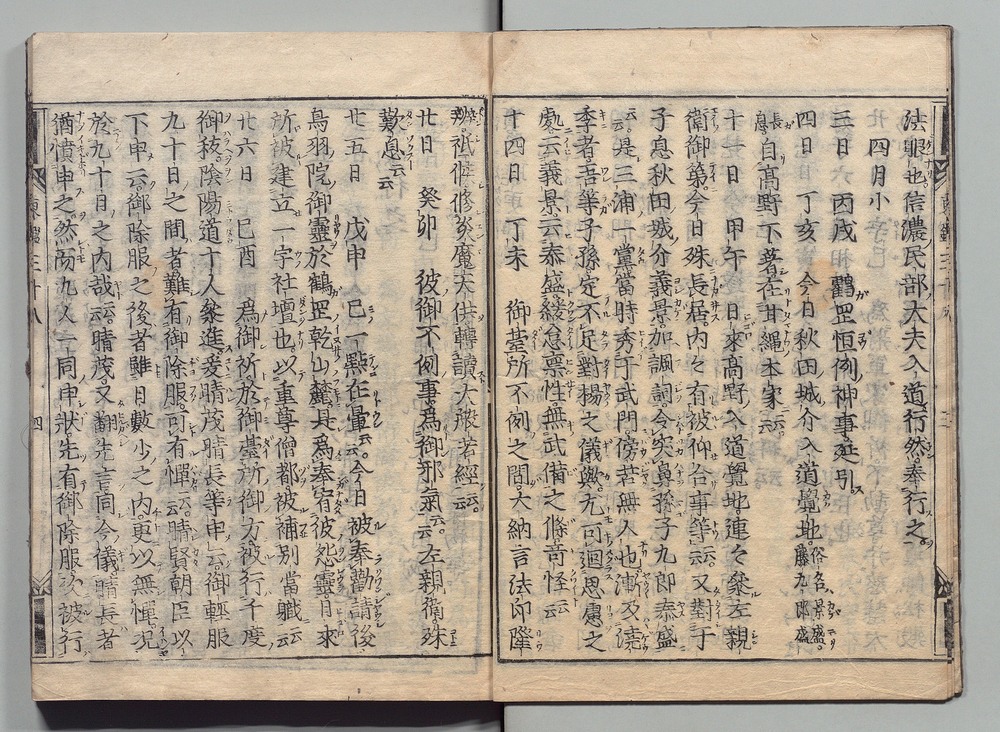 法眼也信濃民部大夫入道行然奉行之
四月小辛巳
三日六丙戌相 鶴罡恒例神事延引
四日 丁亥 今日秋田城介入道覺地俗名景盛藤九郎盛
長息自高野下著在甘縄本家云云
十一日 甲午 日來高野入道覺地連々參左親
衛御第今日殊長居内々有被仰合事等云云又對于
子息秋田城介義景加諷詞令突鼻孫子九郎泰盛
云云是三浦一黨當時秀于武門傍若無人也漸及澆
季者吾等子孫定不足對揚之儀歟尤可廻思慮之
處云義景云泰盛緩怠禀性無武備之條奇怪云云
十四日 丁未 御臺所不例之間大納言法印隆
辨祇候修炎魔天供轉讀大般若經云云
廿日 癸卯 彼御不例事爲御邪氣云云左親衛殊
歎息云云
廿五日 戊申 巳一點在暈云云今日被奉勸請後
鳥羽院御靈於鶴罡乾山麓是爲奉宥彼怨靈日來
所被建立一宇社壇也以重尊僧都被補別當職云云
廿六日 己酉 爲御祈於御臺所御方被行千度
御秡陰陽道十人參進爰晴茂晴長等申云御輕服
九十日之間者難有御除服可有憚云云晴賢朝臣以
下申云御除服之後者雖日數少之内更以無憚況
於九十日之内哉云云晴茂又翻先言同今儀晴長者
猶憤申之然而九人一同申狀先有御除服次被行
東鑑三十八
四